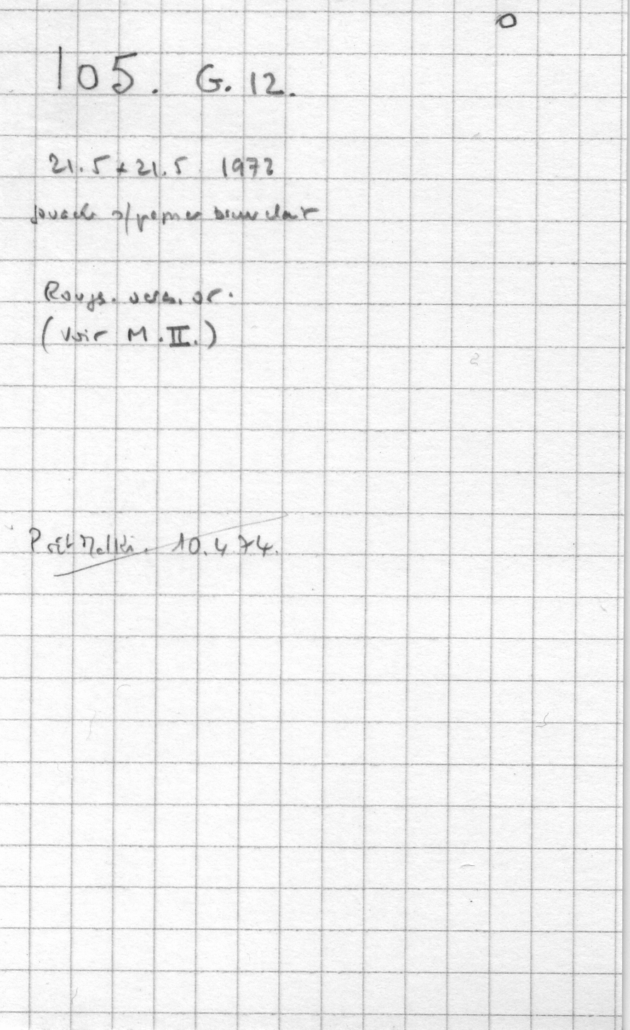 O
105. G. 12.
21.5 x 21.5 1973
gouache s/papier brun clair
Rouge. vers. or.
(Voir M.II.)
Prêt Melki. 10.4 74.